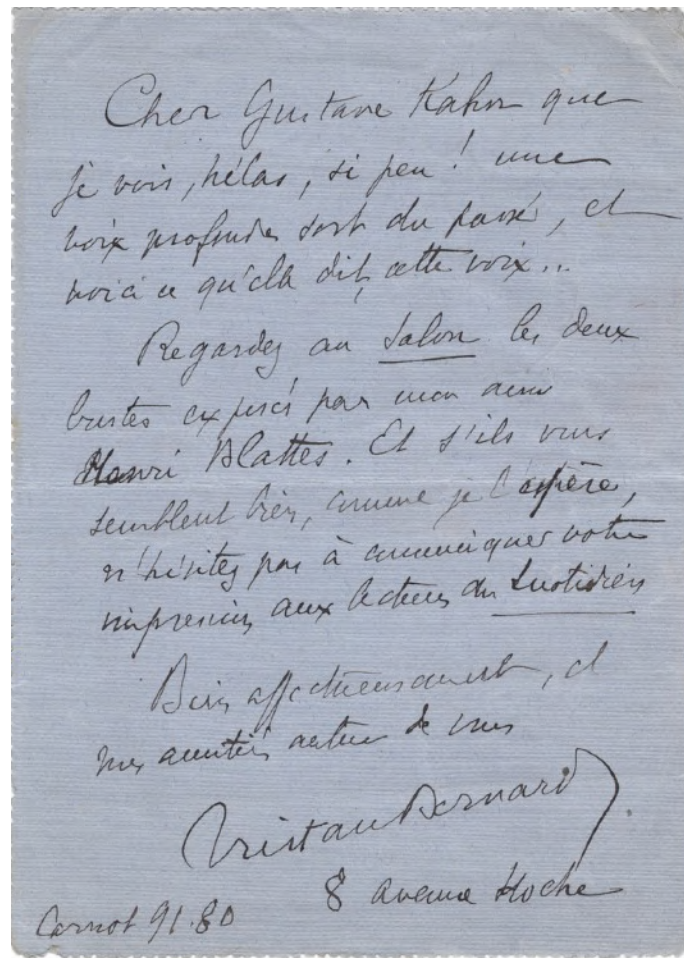 Cher Gustave Kahn que
je vois, hélas, si peu ! une
voix profonde sort du passé, et
voici ce qu'elle dit, cette voix...
Regardez au Salon les deux
bustes exposés par mon ami
Henri Blattès. Et s'ils vous
semblent bien, comme je l'espère,
n'hésitez pas à communiquer votre
impression aux lecteurs du Quotidien
Bien affectueusement, et
mes amitiés autour de vous
Tristan Bernard
8 avenue Hoche
Carnot 91.80